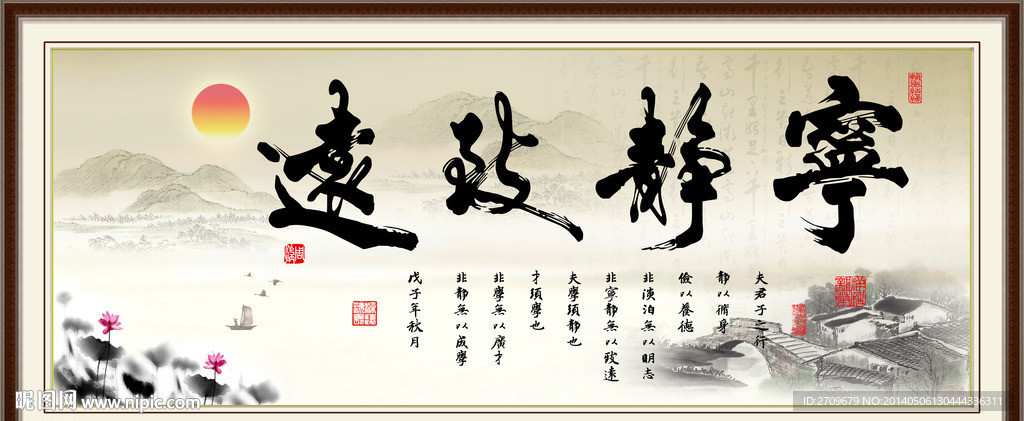 寧靜致遠
夫君子之行
靜以脩身
儉以養德
非淡泊無以明志
非寧靜無以致遠
夫學須靜也
才須學也
非學無以廣才
非靜無以成學
戊子年秋月
昵图网 www.nipic.com
ID:2709679 NO:20140506130444336311